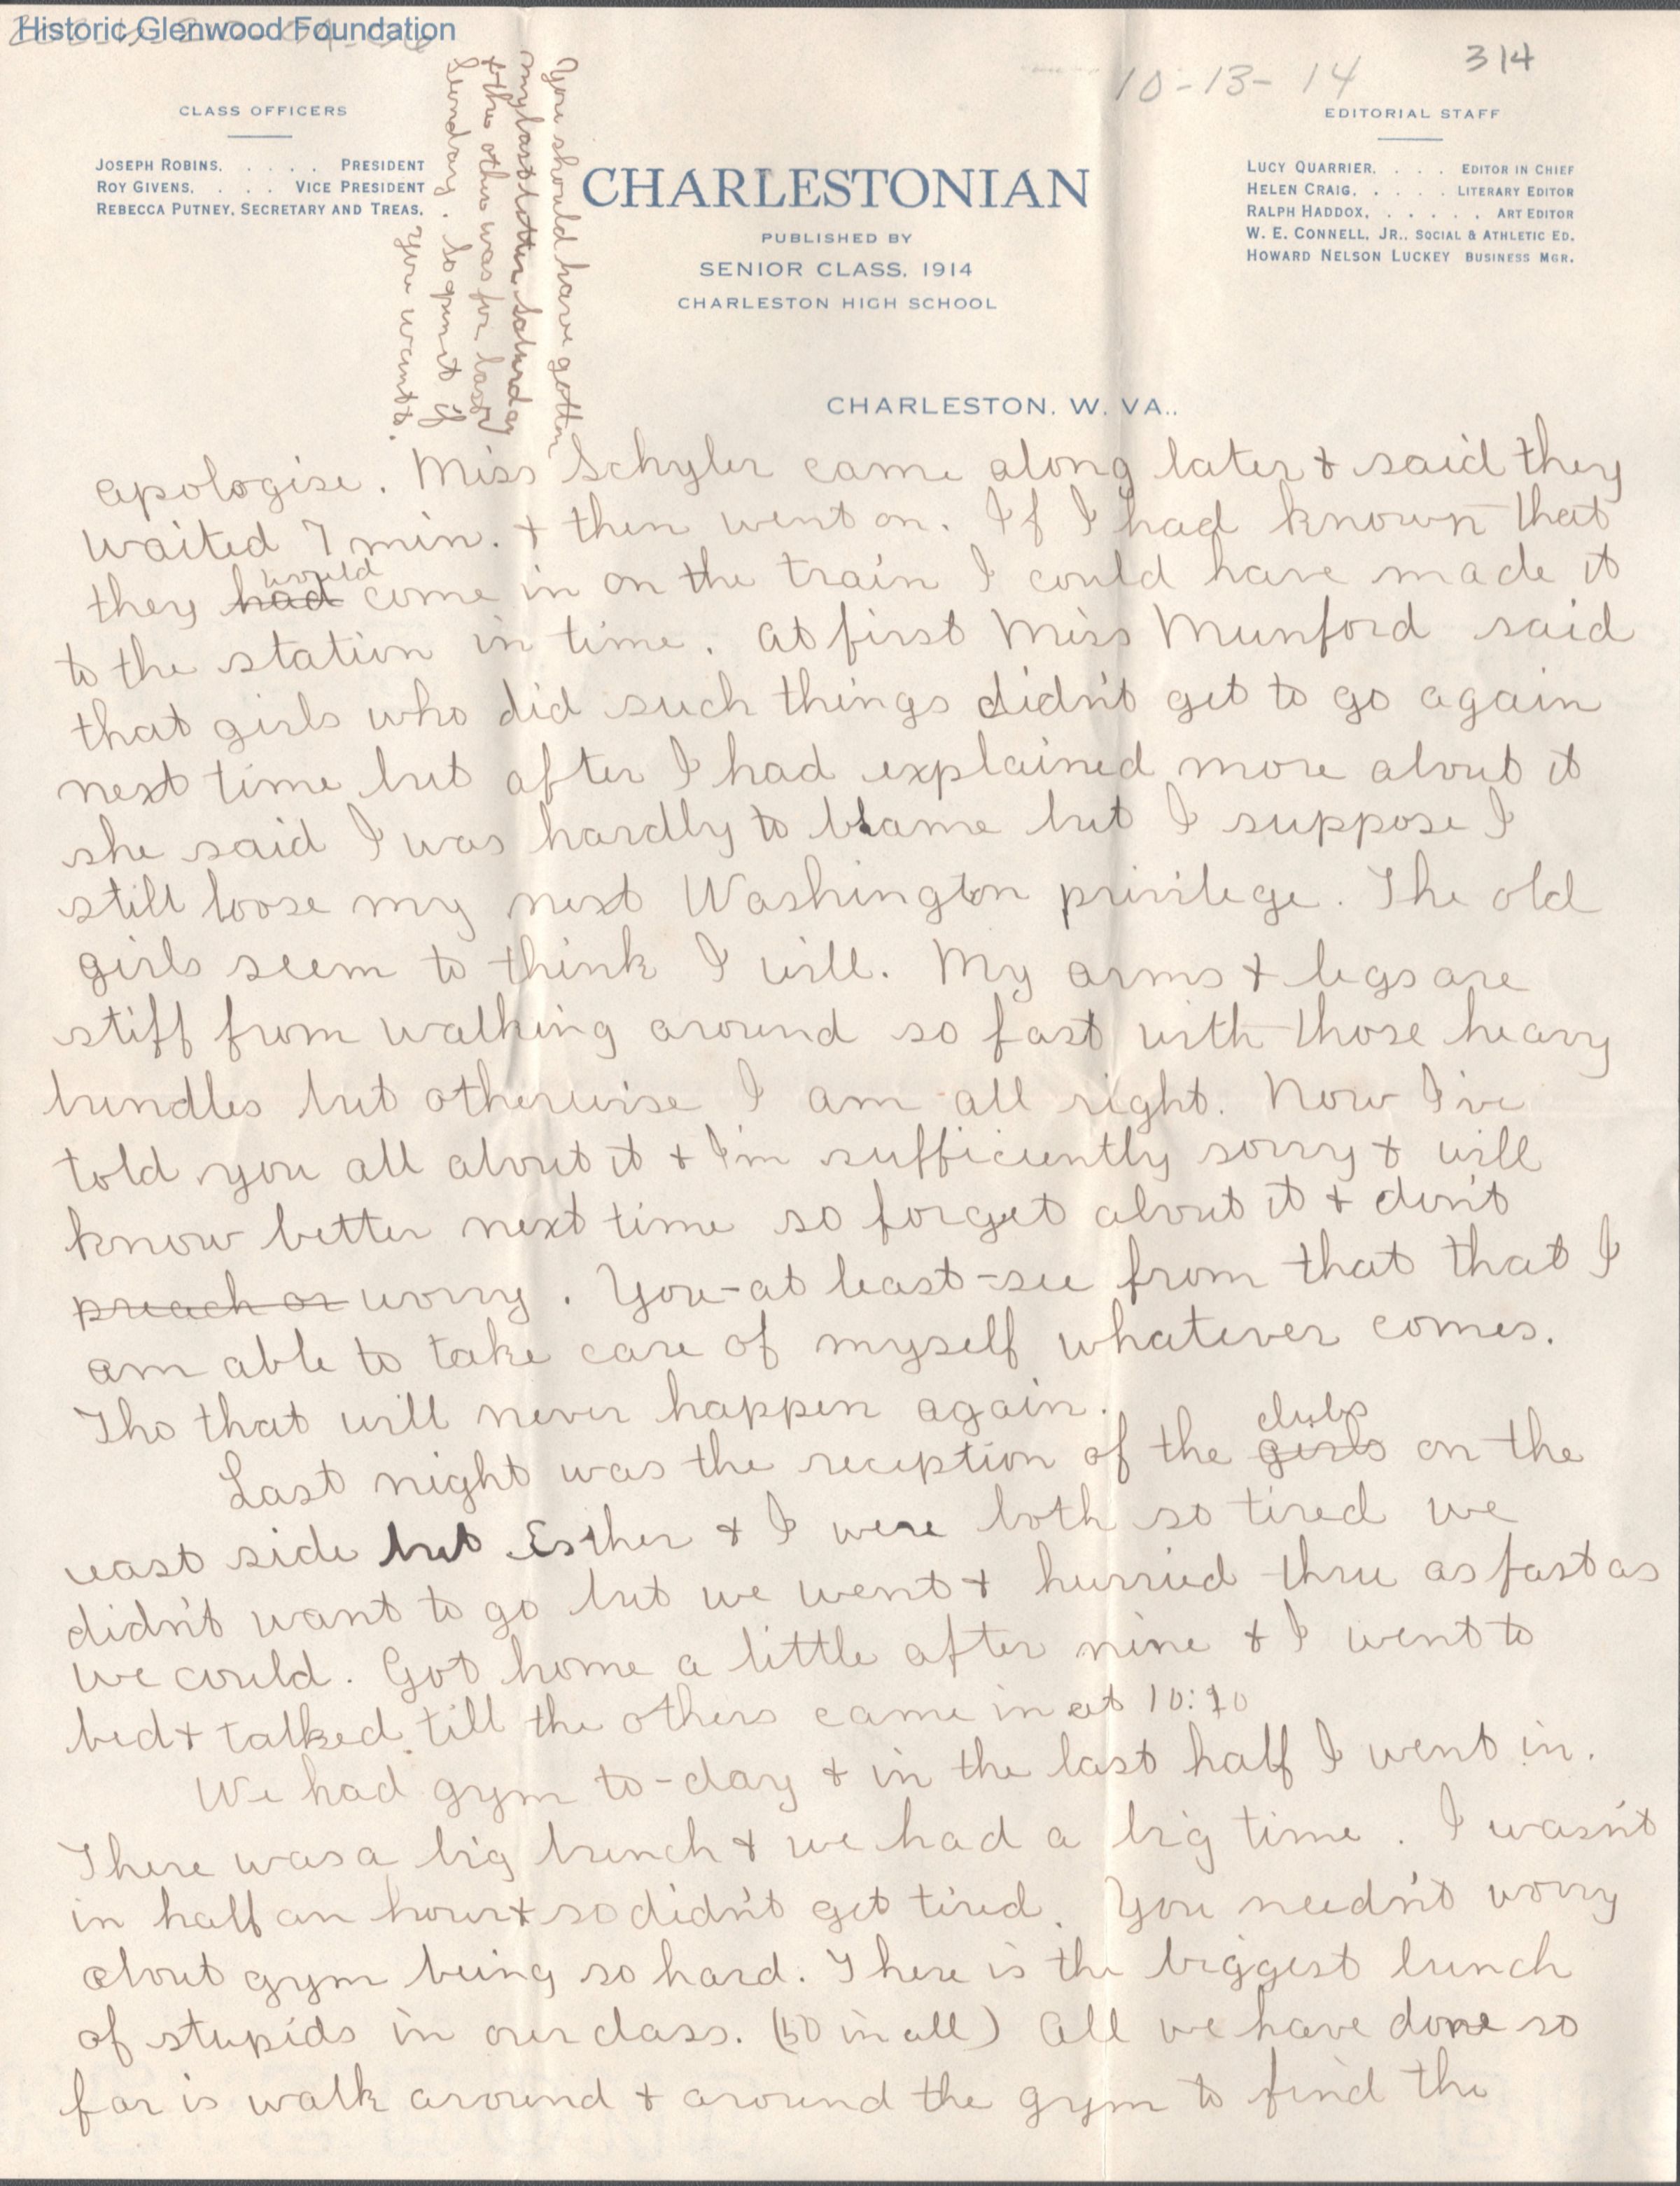 Historic Glenwood Foundation
10-13-14
314
CLASS OFFICERS
JOSEPH ROBINS. . . . . PRESIDENT
ROY GIVENS. . . . VICE PRESIDENT
REBECCA PUTNEY, SECRETARY AND TREAS.
EDITORIAL STAFF
LUCY QUARRIER. . . . EDITOR IN CHIEF
HELEN CRAIG. . . . . LITERARY EDITOR
RALPH HADDOX. . . . . . ART EDITOR
W. E. CONNELL, JR., SOCIAL & ATHLETIC ED.
HOWARD NELSON LUCKEY BUSINESS MGR.
CHARLESTONIAN
PUBLISHED BY
SENIOR CLASS, 1914
CHARLESTON HIGH SCHOOL
CHARLESTON, W. VA.,
You should have gotten
my last letter Saturday
& the other was for last
Sunday. So quit it if
you want to.
apologise. Miss Schyler came along later & said they
waited 7 min. & then went on. If I had known that
they had would come in on the train I could have made it
to the station in time. At first Miss Munford said
that girls who did such things didn't get to go again
next time but after I had explained more about it
she said I was hardly to blame but I suppose I
still loose my next Washington privilege. The old
girls seem to think I will. My arms & legs are
stiff from walking around so fast with those heavy
bundles but otherwise I am all right. Now I've
told you all about it & I'm sufficiently sorry & will
know better next time so forget about it & don't
preach or worry. You-at least-see from that that I
am able to take care of myself whatever comes.
Tho that will never happen again.
Last night was the reception of the girls clubs on the
east side but Esther & I were both so tired we
didn't want to go but we went & hurried thru as fast as
we could. Got home a little after nine & I went to
bed & talked till the others came in at
We had gym to-day & in the last half I went in.
There was a big bunch & we had a big time. I wasn't
in half an hour & so didn't get tired. You needn't worry
about gym being so hard. There is the biggest bunch
of stupids in our class. (50 in all) All we have done so
far is walk around & around the gym to find the